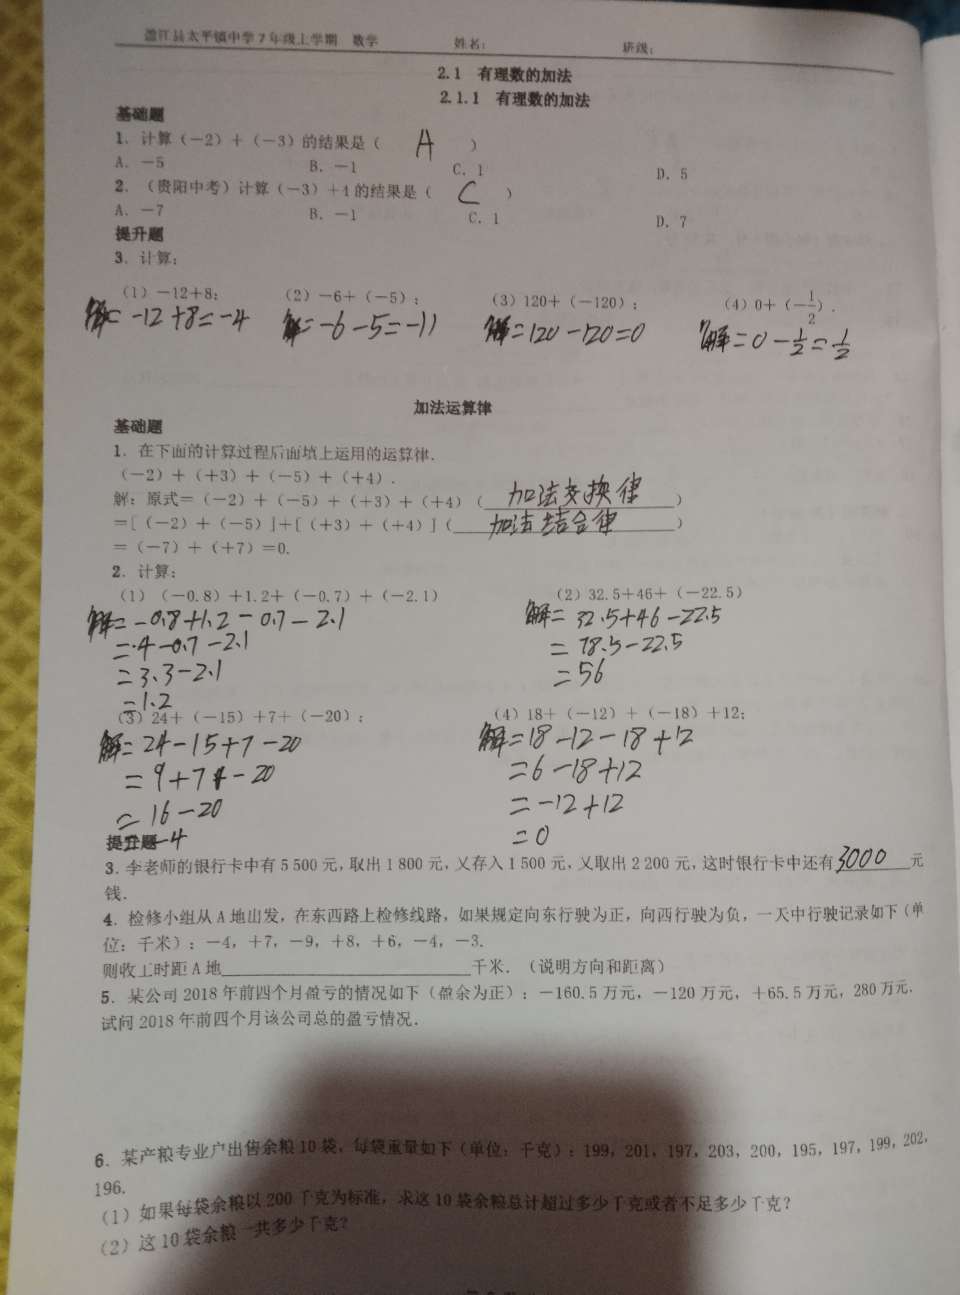 盈江县太平镇中学7年级上学期 数学 姓名： 班级：
2.1 有理数的加法
2.1.1 有理数的加法
基础题
1．计算（－2）＋（－3）的结果是（ A ）
A．－5 B．－1 C．1 D．5
2．（贵阳中考）计算（－3）＋4的结果是（ C ）
A．－7 B．－1 C．1 D．7
提升题
3．计算：
（1）－12＋8； （2）－6＋（－5）； （3）120＋（－120）； （4）0＋（－1/2）．
解=-12+8=-4 解=-6-5=-11 解=120-120=0 解=0-1/2=1/2
加法运算律
基础题
1．在下面的计算过程后面填上运用的运算律．
（－2）＋（＋3）＋（－5）＋（＋4）．
解：原式＝（－2）＋（－5）＋（＋3）＋（＋4）（ 加法交换律 ）
＝[（－2）＋（－5）]＋[（＋3）＋（＋4）]（ 加法结合律 ）
＝（－7）＋（＋7）＝0.
2．计算：
（1）（－0.8）＋1.2＋（－0.7）＋（－2.1） （2）32.5＋46＋（－22.5）
解=-0.8+1.2-0.7-2.1 解=32.5+46-22.5
=4-0.7-2.1 =78.5-22.5
=3.3-2.1 =56
=1.2
（3）24＋（－15）＋7＋（－20）； （4）18＋（－12）＋（－18）＋12；
解=24-15+7-20 解=18-12-18+12
=9+7-20 =6-18+12
=16-20 =-12+12
提升题 -4 =0
3．李老师的银行卡中有5 500元，取出1 800元，又存入1 500元，又取出2 200元，这时银行卡中还有3000元
钱．
4．检修小组从A地出发，在东西路上检修线路，如果规定向东行驶为正，向西行驶为负，一天中行驶记录如下（单
位：千米）：－4，＋7，－9，＋8，＋6，－4，－3.
则收工时距A地________千米．（说明方向和距离）
5．某公司2018年前四个月盈亏的情况如下（盈余为正）：－160.5万元，－120万元，＋65.5万元，280万元．
试问2018年前四个月该公司总的盈亏情况．
6．某产粮专业户出售余粮10袋，每袋重量如下（单位：千克）：199，201，197，203，200，195，197，199，202，
196.
（1）如果每袋余粮以200千克为标准，求这10袋余粮总计超过多少千克或者不足多少千克？
（2）这10袋余粮一共多少千克？